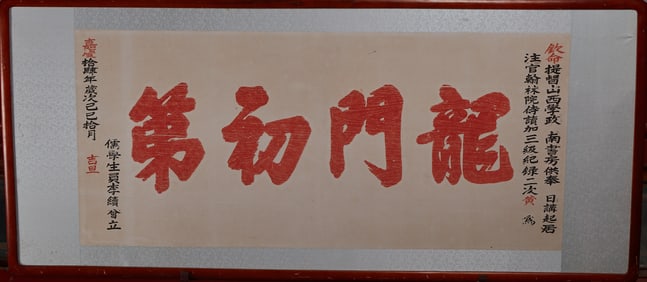 欽命提督山西學政 南書房供奉 日講起居
注官翰林院侍講加三級紀錄二次黄 為
龍門初第
儒學生員李績曾立
嘉慶拾肆年歲次己巳拾月 吉旦